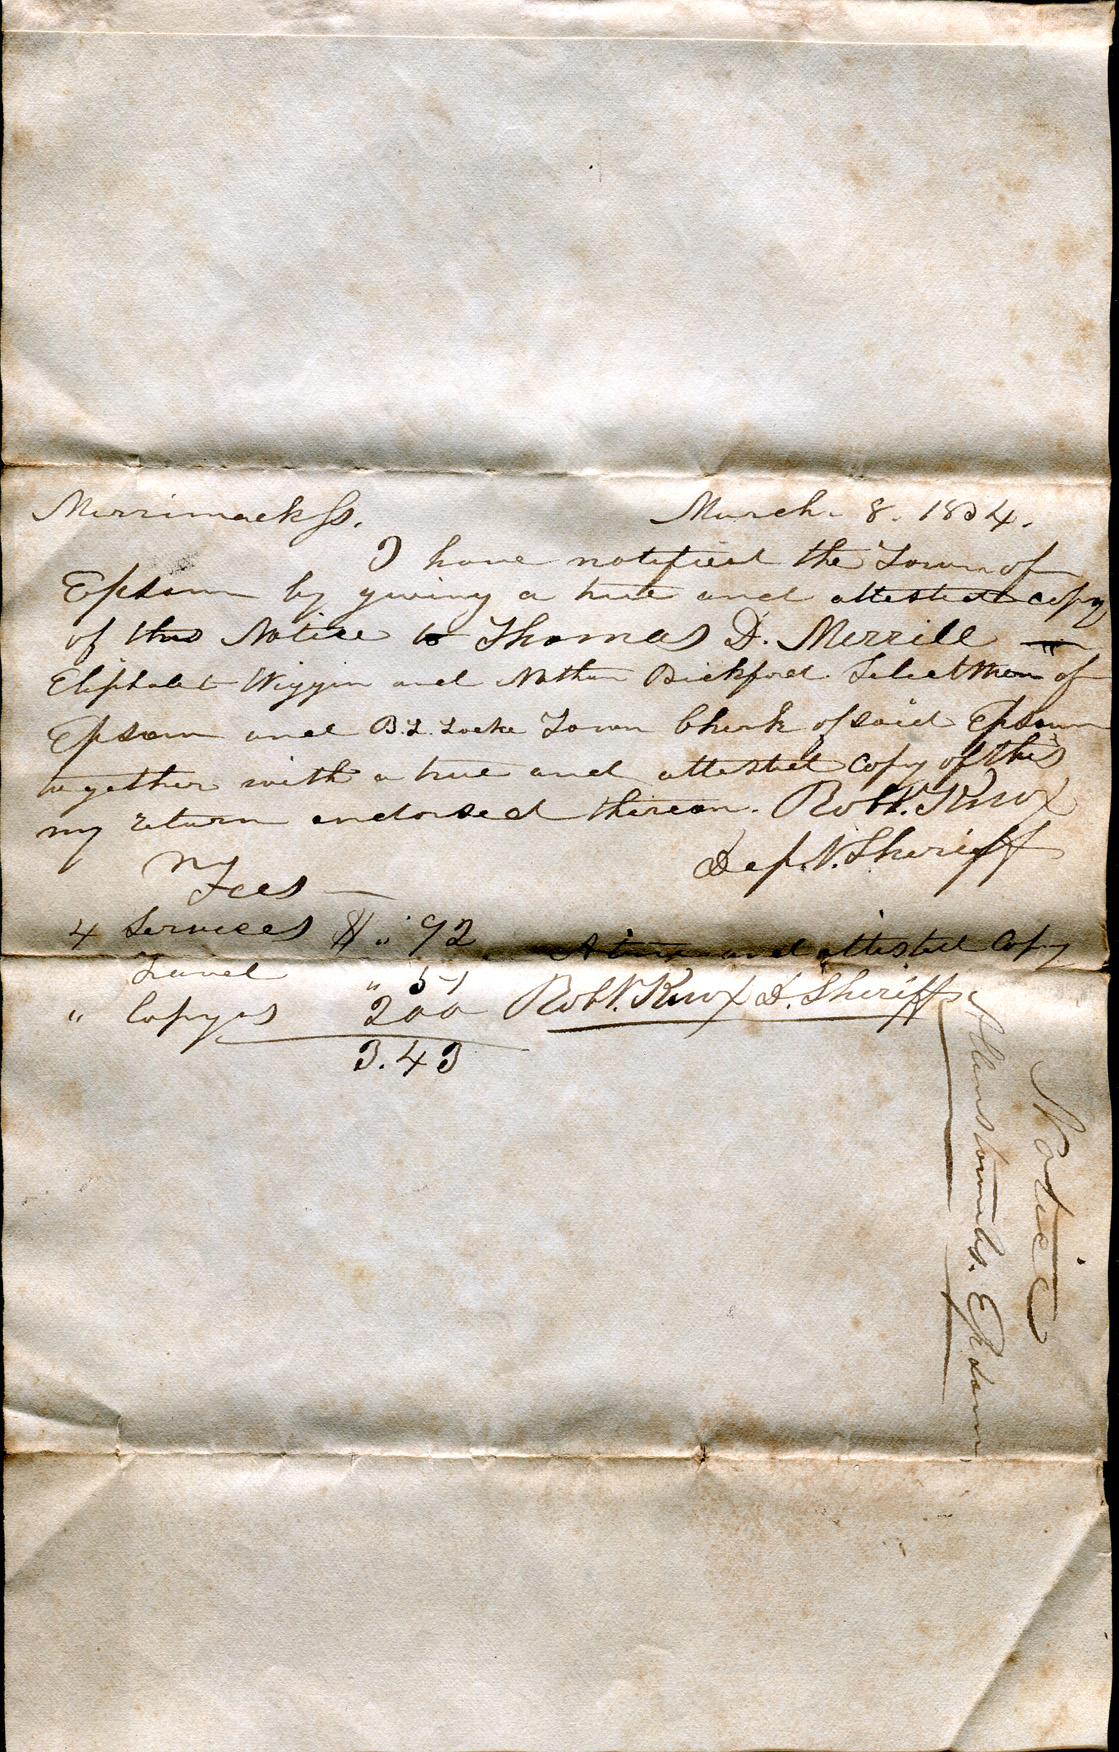 Merrimack ss. March. 8. 1834.
I have notified the Town of
Epsom by giving a true and attested copy
of this Notice to Thomas D. Merrill
Eliphalet Wiggin and Nathan Bickford Select Men of
Epsom and B. L. Locke Town Clerk of said Epsom
together with a true and attested copy of this
my return endorsed thereon. Robt. Knox
Dep. Sheriff
Fees
4 Services $ .. 92
A true and attested Copy
Travel " 51
" Copyes 2 00 Robt. Knox D. Sheriff
3.43
Notice
Allenstown vs. Epsom